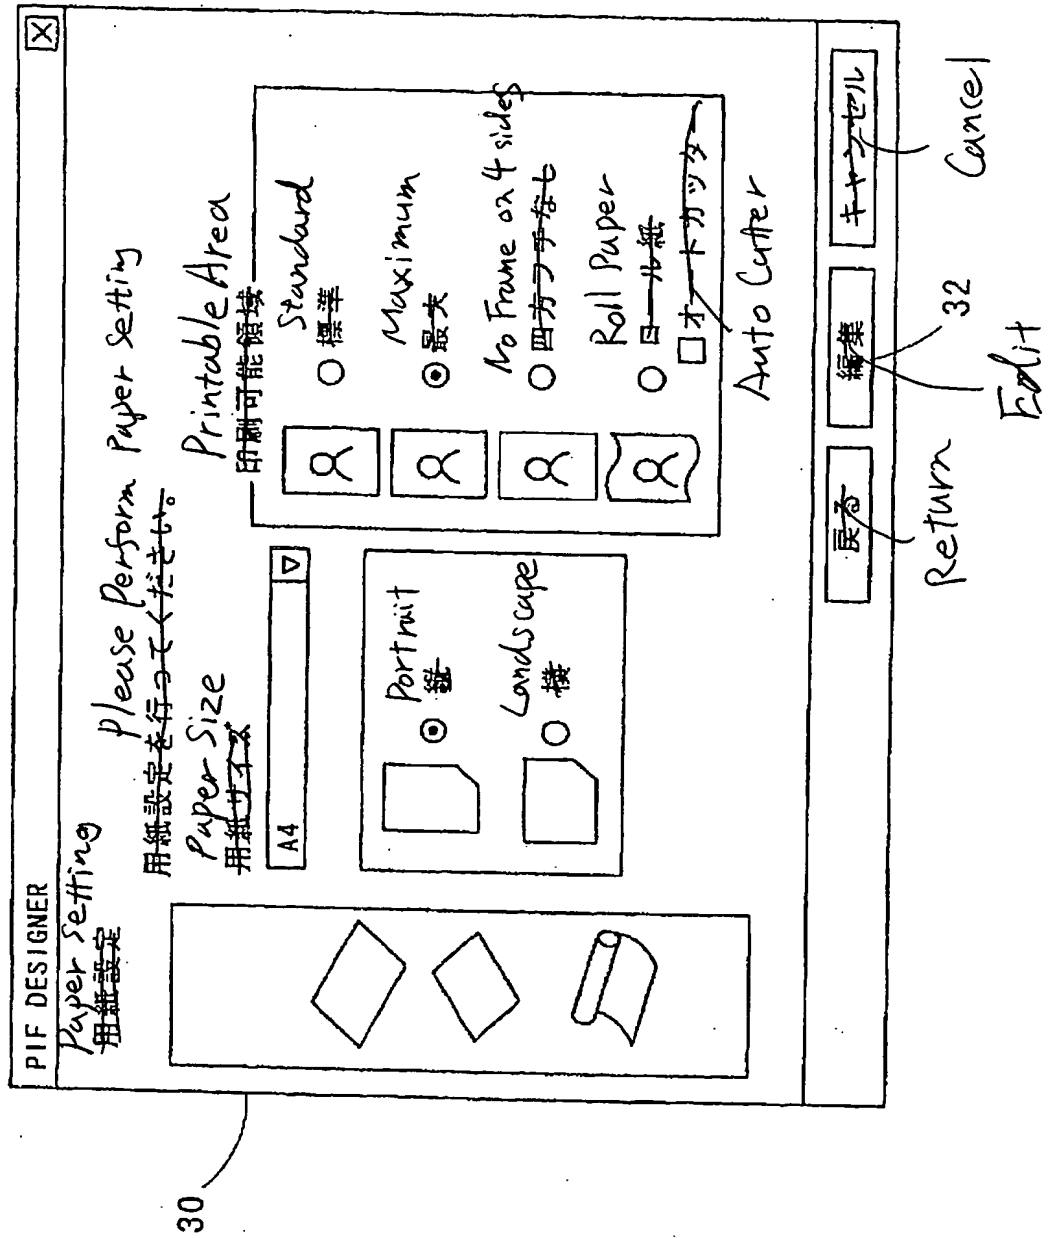 PIF DESIGNER
Paper setting
用紙設定
Please Perform Paper Setting
用紙設定を行ってください。
Paper Size
用紙サイズ
A4
Portrait
縦
Landscape
横
Printable Area
印刷可能領域
Standard
標準
Maximum
最大
No Frame on 4 sides
四方フチなし
Roll Paper
ロール紙
オートカッター
Auto Cutter
戻る
編集
キャンセル
Return
32
Edit
Cancel
30